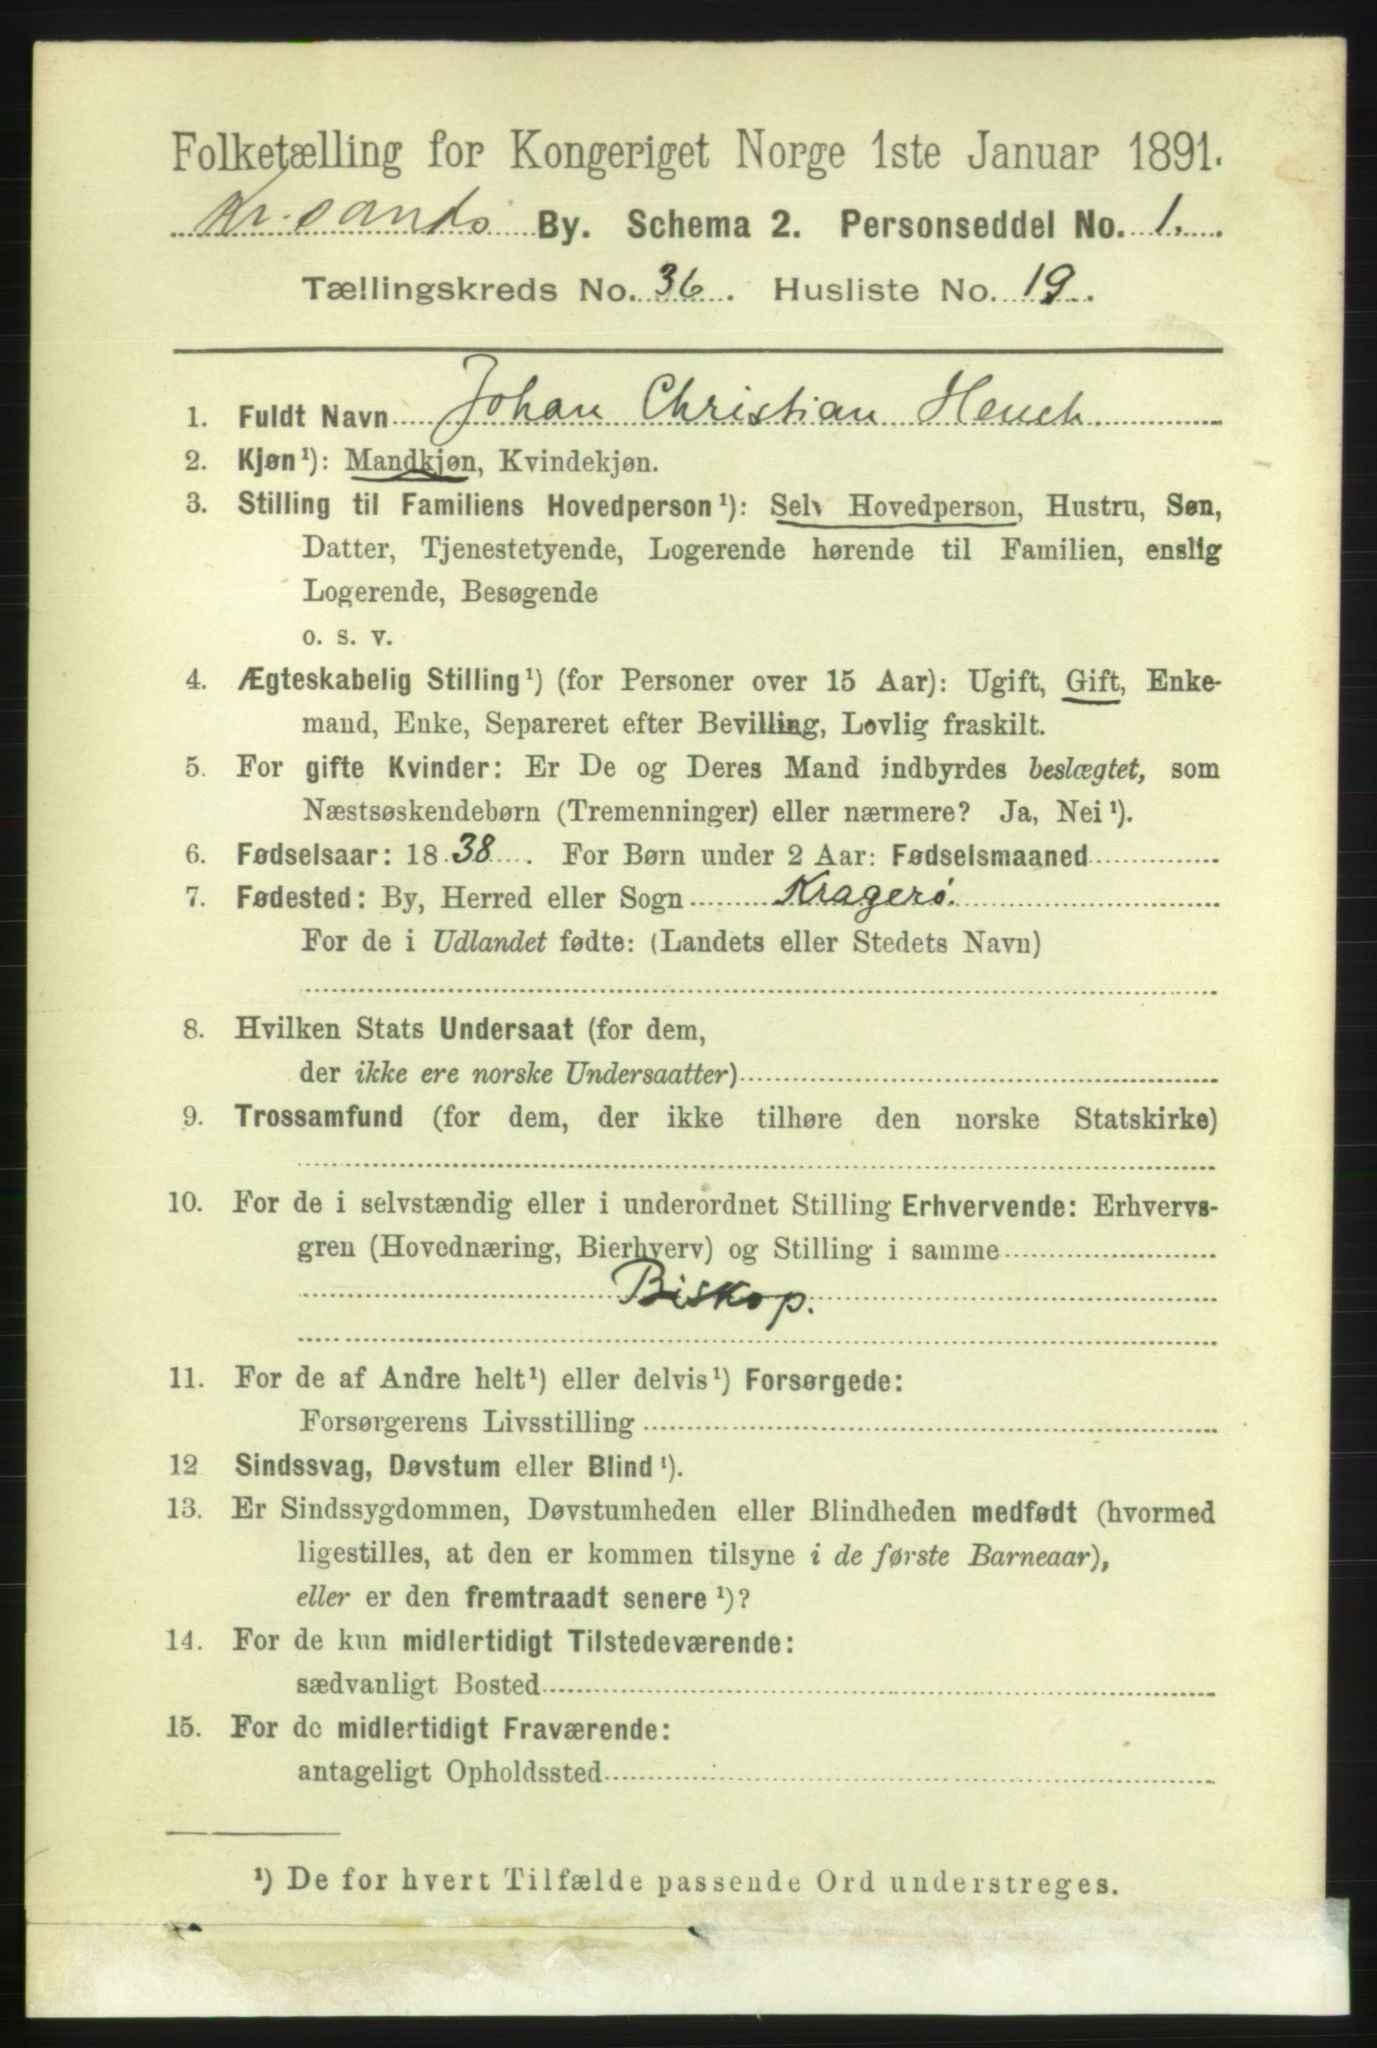 Folketælling for Kongeriget Norge 1ste Januar 1891.
Kr.sands By. Schema 2. Personseddel No. 1.
Tællingskreds No. 36. Husliste No. 19.
1. Fuldt Navn Johan Christian Heuch
2. Kjøn¹): Mandkjøn, Kvindekjøn.
3. Stilling til Familiens Hovedperson¹): Selv Hovedperson, Hustru, Søn,
Datter, Tjenestetyende, Logerende hørende til Familien, enslig
Logerende, Besøgende
o. s. v.
4. Ægteskabelig Stilling¹) (for Personer over 15 Aar): Ugift, Gift, Enke-
mand, Enke, Separeret efter Bevilling, Lovlig fraskilt.
5. For gifte Kvinder: Er De og Deres Mand indbyrdes beslægtet, som
Næstsøskendebørn (Tremenninger) eller nærmere? Ja, Nei¹).
6. Fødselsaar: 1838. For Børn under 2 Aar: Fødselsmaaned
7. Fødested: By, Herred eller Sogn Kragerö.
For de i Udlandet fødte: (Landets eller Stedets Navn)
8. Hvilken Stats Undersaat (for dem,
der ikke ere norske Undersaatter)
9. Trossamfund (for dem, der ikke tilhøre den norske Statskirke)
10. For de i selvstændig eller i underordnet Stilling Erhvervende: Erhvervs-
gren (Hovednæring, Bierhverv) og Stilling i samme
Biskop.
11. For de af Andre helt¹) eller delvis¹) Forsørgede:
Forsørgerens Livsstilling
12 Sindssvag, Døvstum eller Blind¹).
13. Er Sindssygdommen, Døvstumheden eller Blindheden medfødt (hvormed
ligestilles, at den er kommen tilsyne i de første Barneaar),
eller er den fremtraadt senere¹)?
14. For de kun midlertidigt Tilstedeværende:
sædvanligt Bosted
15. For de midlertidigt Fraværende:
antageligt Opholdssted
¹) De for hvert Tilfælde passende Ord understreges.